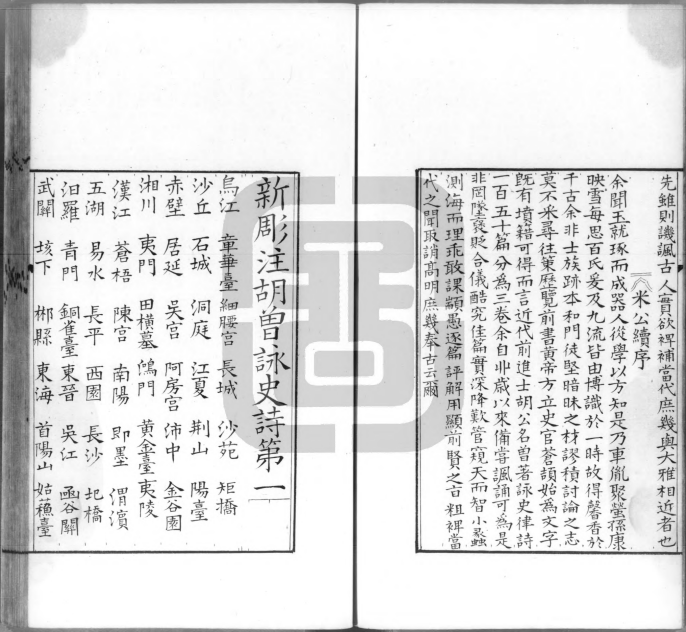 先雖則譏諷古人實欲裨補當代庶幾與大雅相近者也
米公續序
余聞玉就琢而成器人從學以方知是乃車胤聚螢孫康
映雪每思百氏爰及九流皆由博識於一時故得馨香於
千古余非士族跡本和門徒堅暗昧之材謬積討論之志
莫不釆尋往策歷覽前書黄帝方立史官蒼頡始為文字
旣有墳籍可得而言近代前進士胡公名曽著詠史律詩
一百五十篇分為三卷余自丱歲以來備嘗諷誦可為是
非罔墜褒貶合儀酷究佳篇實深降歎管窺天而智小蠡
測海而理乖敢課顓愚逐篇評解用顯前賢之旨粗裨當
代之聞取誚髙明庶幾奉古云爾
新彫注胡曽詠史詩第一
烏江 章華臺 細腰宫 長城 沙苑 矩橋
沙丘 石城 洞庭 江夏 荆山 陽臺
赤壁 居延 吳宫 阿房宫 沛中 金谷園
湘川 夷門 田横墓 鴻門 黄金臺 夷陵
漢江 蒼梧 陳宫 南陽 即墨 渭濵
五湖 易水 長平 西園 長沙 圯橋
汨羅 青門 銅雀臺 東晉 吳江 函谷關
武關 垓下 郴縣 東海 首陽山 姑蘓臺